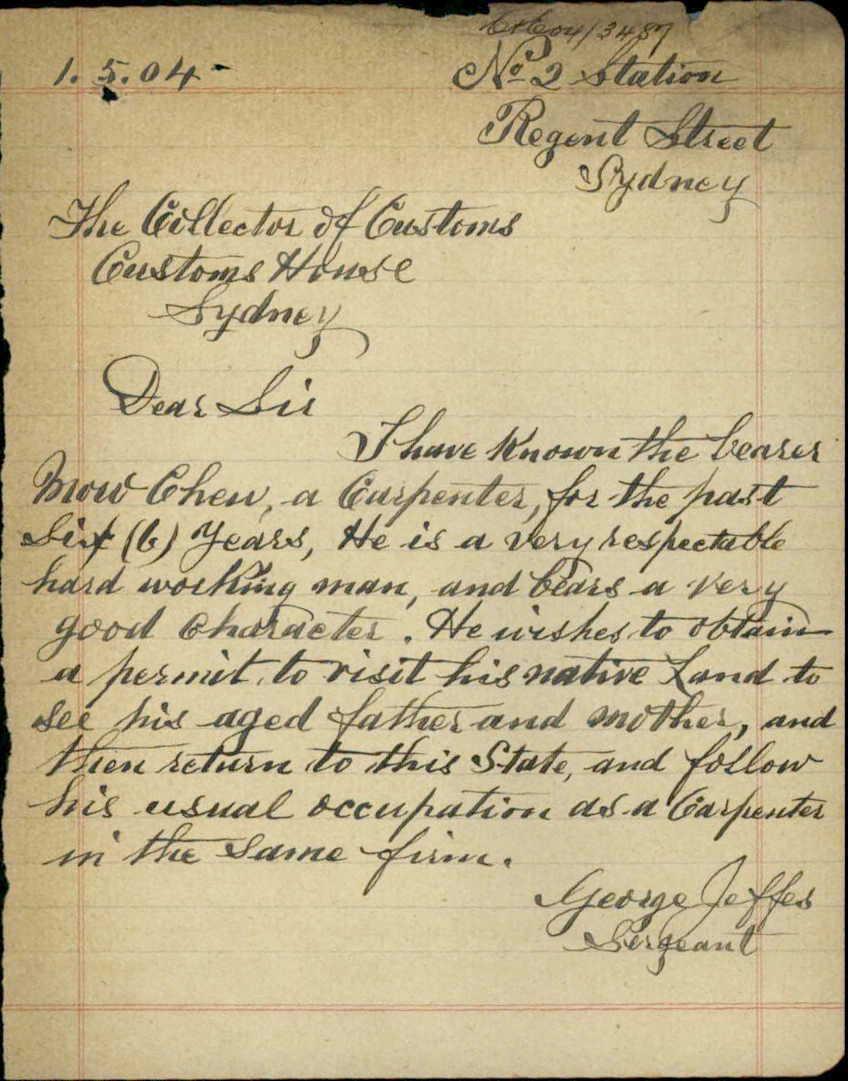 04/3487
1.5.04
No 2 Station
Regent Street
Sydney
The Collector of Customs
Customs House
Sydney
Dear Sir
I have Known the bearer
Mow Chew, a Carpenter, for the past
Six (6) Years, He is a very respectable
hard working man, and bears a very
good Character. He wishes to obtain
a permit to visit his native Land to
see his aged father and mother, and
then return to this State, and follow
his usual occupation as a Carpenter
in the same firm.
George Jeffes
Sergeant